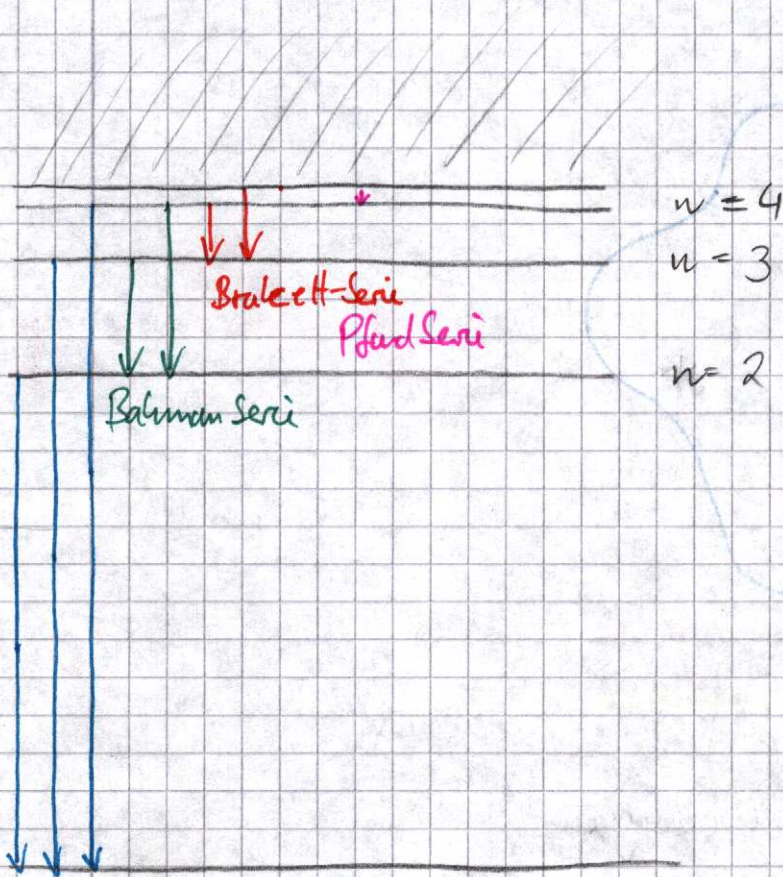 n = 4
n = 3
Brakett-Serie
Pfud Serie
n= 2
Balman Serie